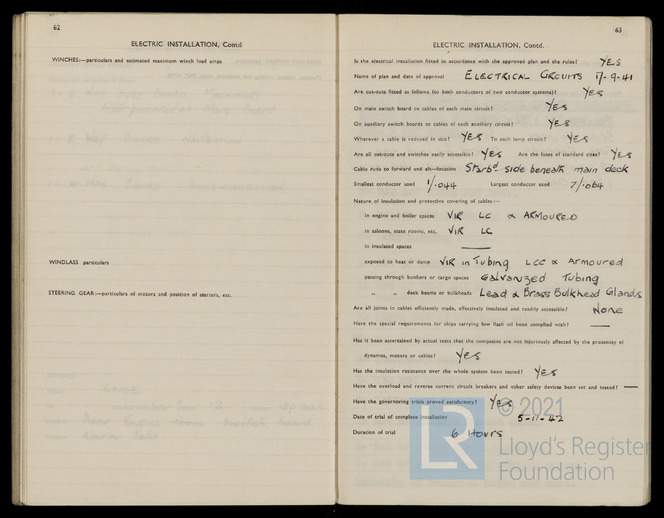 62
ELECTRIC INSTALLATION, Contd
WINCHES:—particulars and estimated maximum winch load amps
WINDLASS particulars
STEERING GEAR:—particulars of motors and position of starters, etc.
63
ELECTRIC INSTALLATION, Contd.
Is the electrical installation fitted in accordance with the approved plan and the rules? YES
Name of plan and date of approval ELECTRICAL CIRCUITS 17-9-41
Are cut-outs fitted as follows (to both conductors of two conductor systems)? YES
On main switch board to cables of each main circuit? YES
On auxiliary switch boards to cables of each auxiliary circuit? YES
Wherever a cable is reduced in size? YES To each lamp circuit? YES
Are all cut-outs and switches easily accessible? YES Are the fuses of standard sizes? YES
Cable runs to forward and aft—location Starbd side beneath main deck
Smallest conductor used 1/.044 Largest conductor used 7/.064
Nature of insulation and protective covering of cables:—
in engine and boiler spaces VIR LC & ARMOURED
in saloons, state rooms, etc. VIR LC
in insulated spaces —
exposed to heat or damp VIR in Tubing LCC & Armoured
passing through bunkers or cargo spaces Galvanized Tubing
„ „ deck beams or bulkheads Lead & Brass Bulkhead Glands
Are all joints in cables efficiently made, effectively insulated and readily accessible? None
Have the special requirements for ships carrying low flash oil been complied with? —
Has it been ascertained by actual tests that the compasses are not injuriously affected by the proximity of
dynamos, motors or cables? Yes
Has the insulation resistance over the whole system been tested? Yes
Have the overload and reverse current circuit breakers and other safety devices been set and tested? —
Have the governing trials proved satisfactory? Yes
Date of trial of complete installation 5-11-42
Duration of trial 6 Hours
LR
© 2021
Lloyd's Register
Foundation